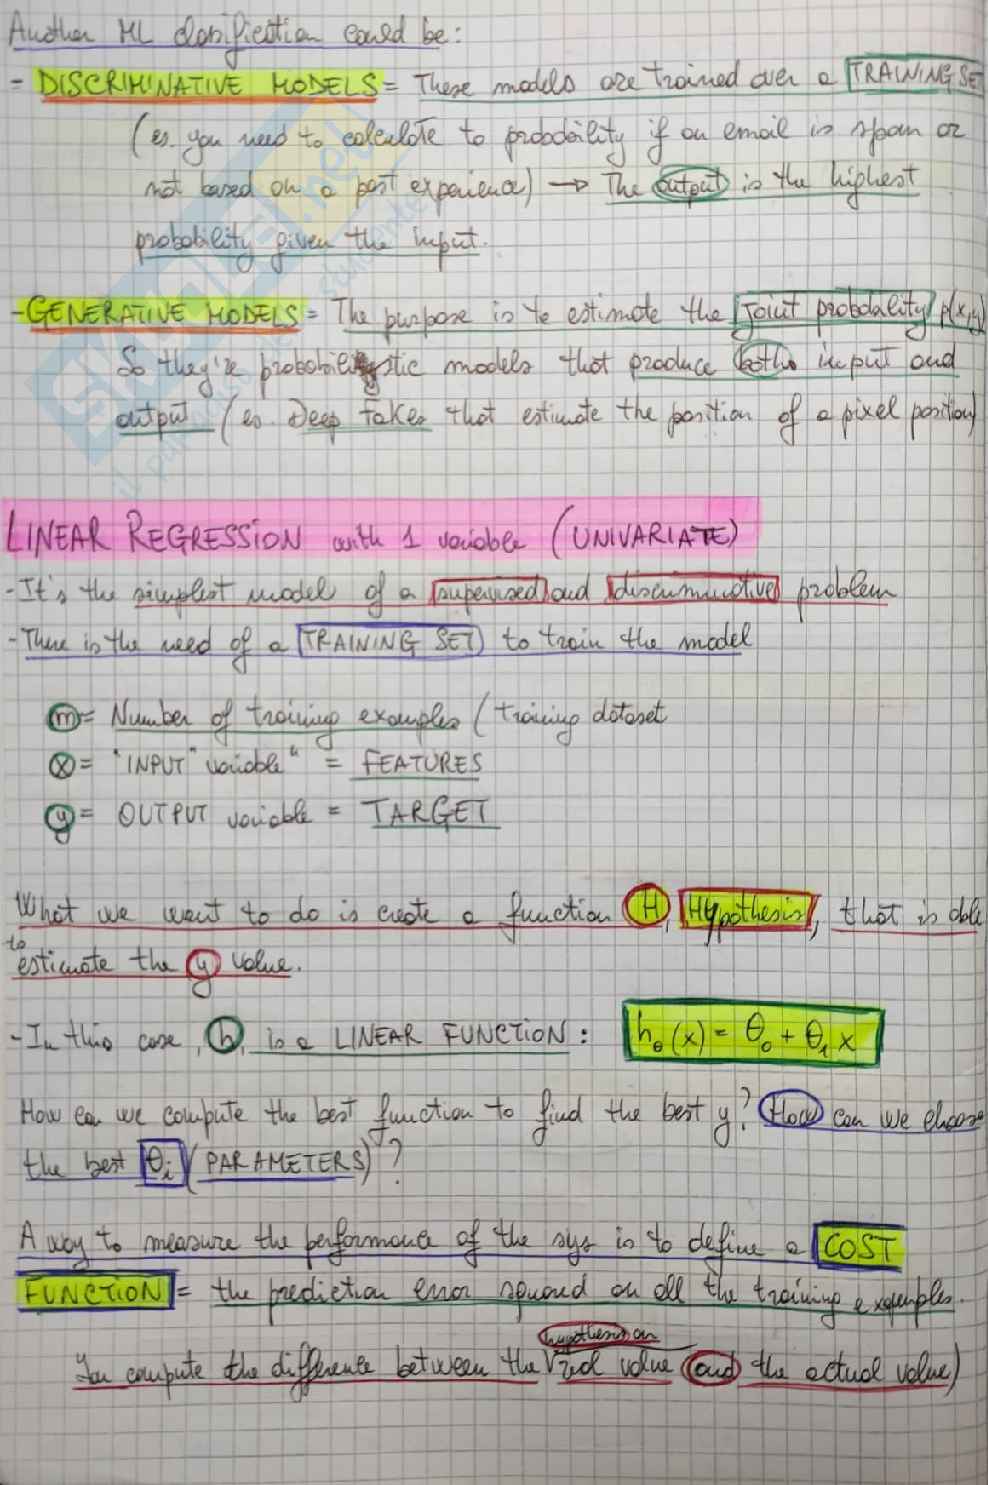 Another ML classification could be:
- DISCRIMINATIVE MODELS = These models are trained over a TRAINING SET
(es. you need to calculate to probability if an email is spam or
not based on a past experience) → The output is the highest
probability given the input.
- GENERATIVE MODELS = The purpose is to estimate the joint probability p(x,y)
So they're probabilistic models that produce both input and
output (es. Deep fakes that estimate the position of a pixel position)
LINEAR REGRESSION with 1 variable (UNIVARIATE)
- It's the simplest model of a supervised and discriminative problem
- There is the need of a TRAINING SET to train the model
m = Number of training examples (training dataset
x = "INPUT" variable" = FEATURES
y = OUTPUT variable = TARGET
What we want to do is create a function H, Hypothesis, that is able
to
estimate the y value.
- In this case, h, is a LINEAR FUNCTION: hθ(x) = θ0 + θ1 x
How can we compute the best function to find the best y? How can we choose
the best θi (PARAMETERS)?
A way to measure the performance of the sys is to define a COST
FUNCTION = the prediction error squared on all the training examples.
hypothesis on
You compute the difference between the real value and the actual value)